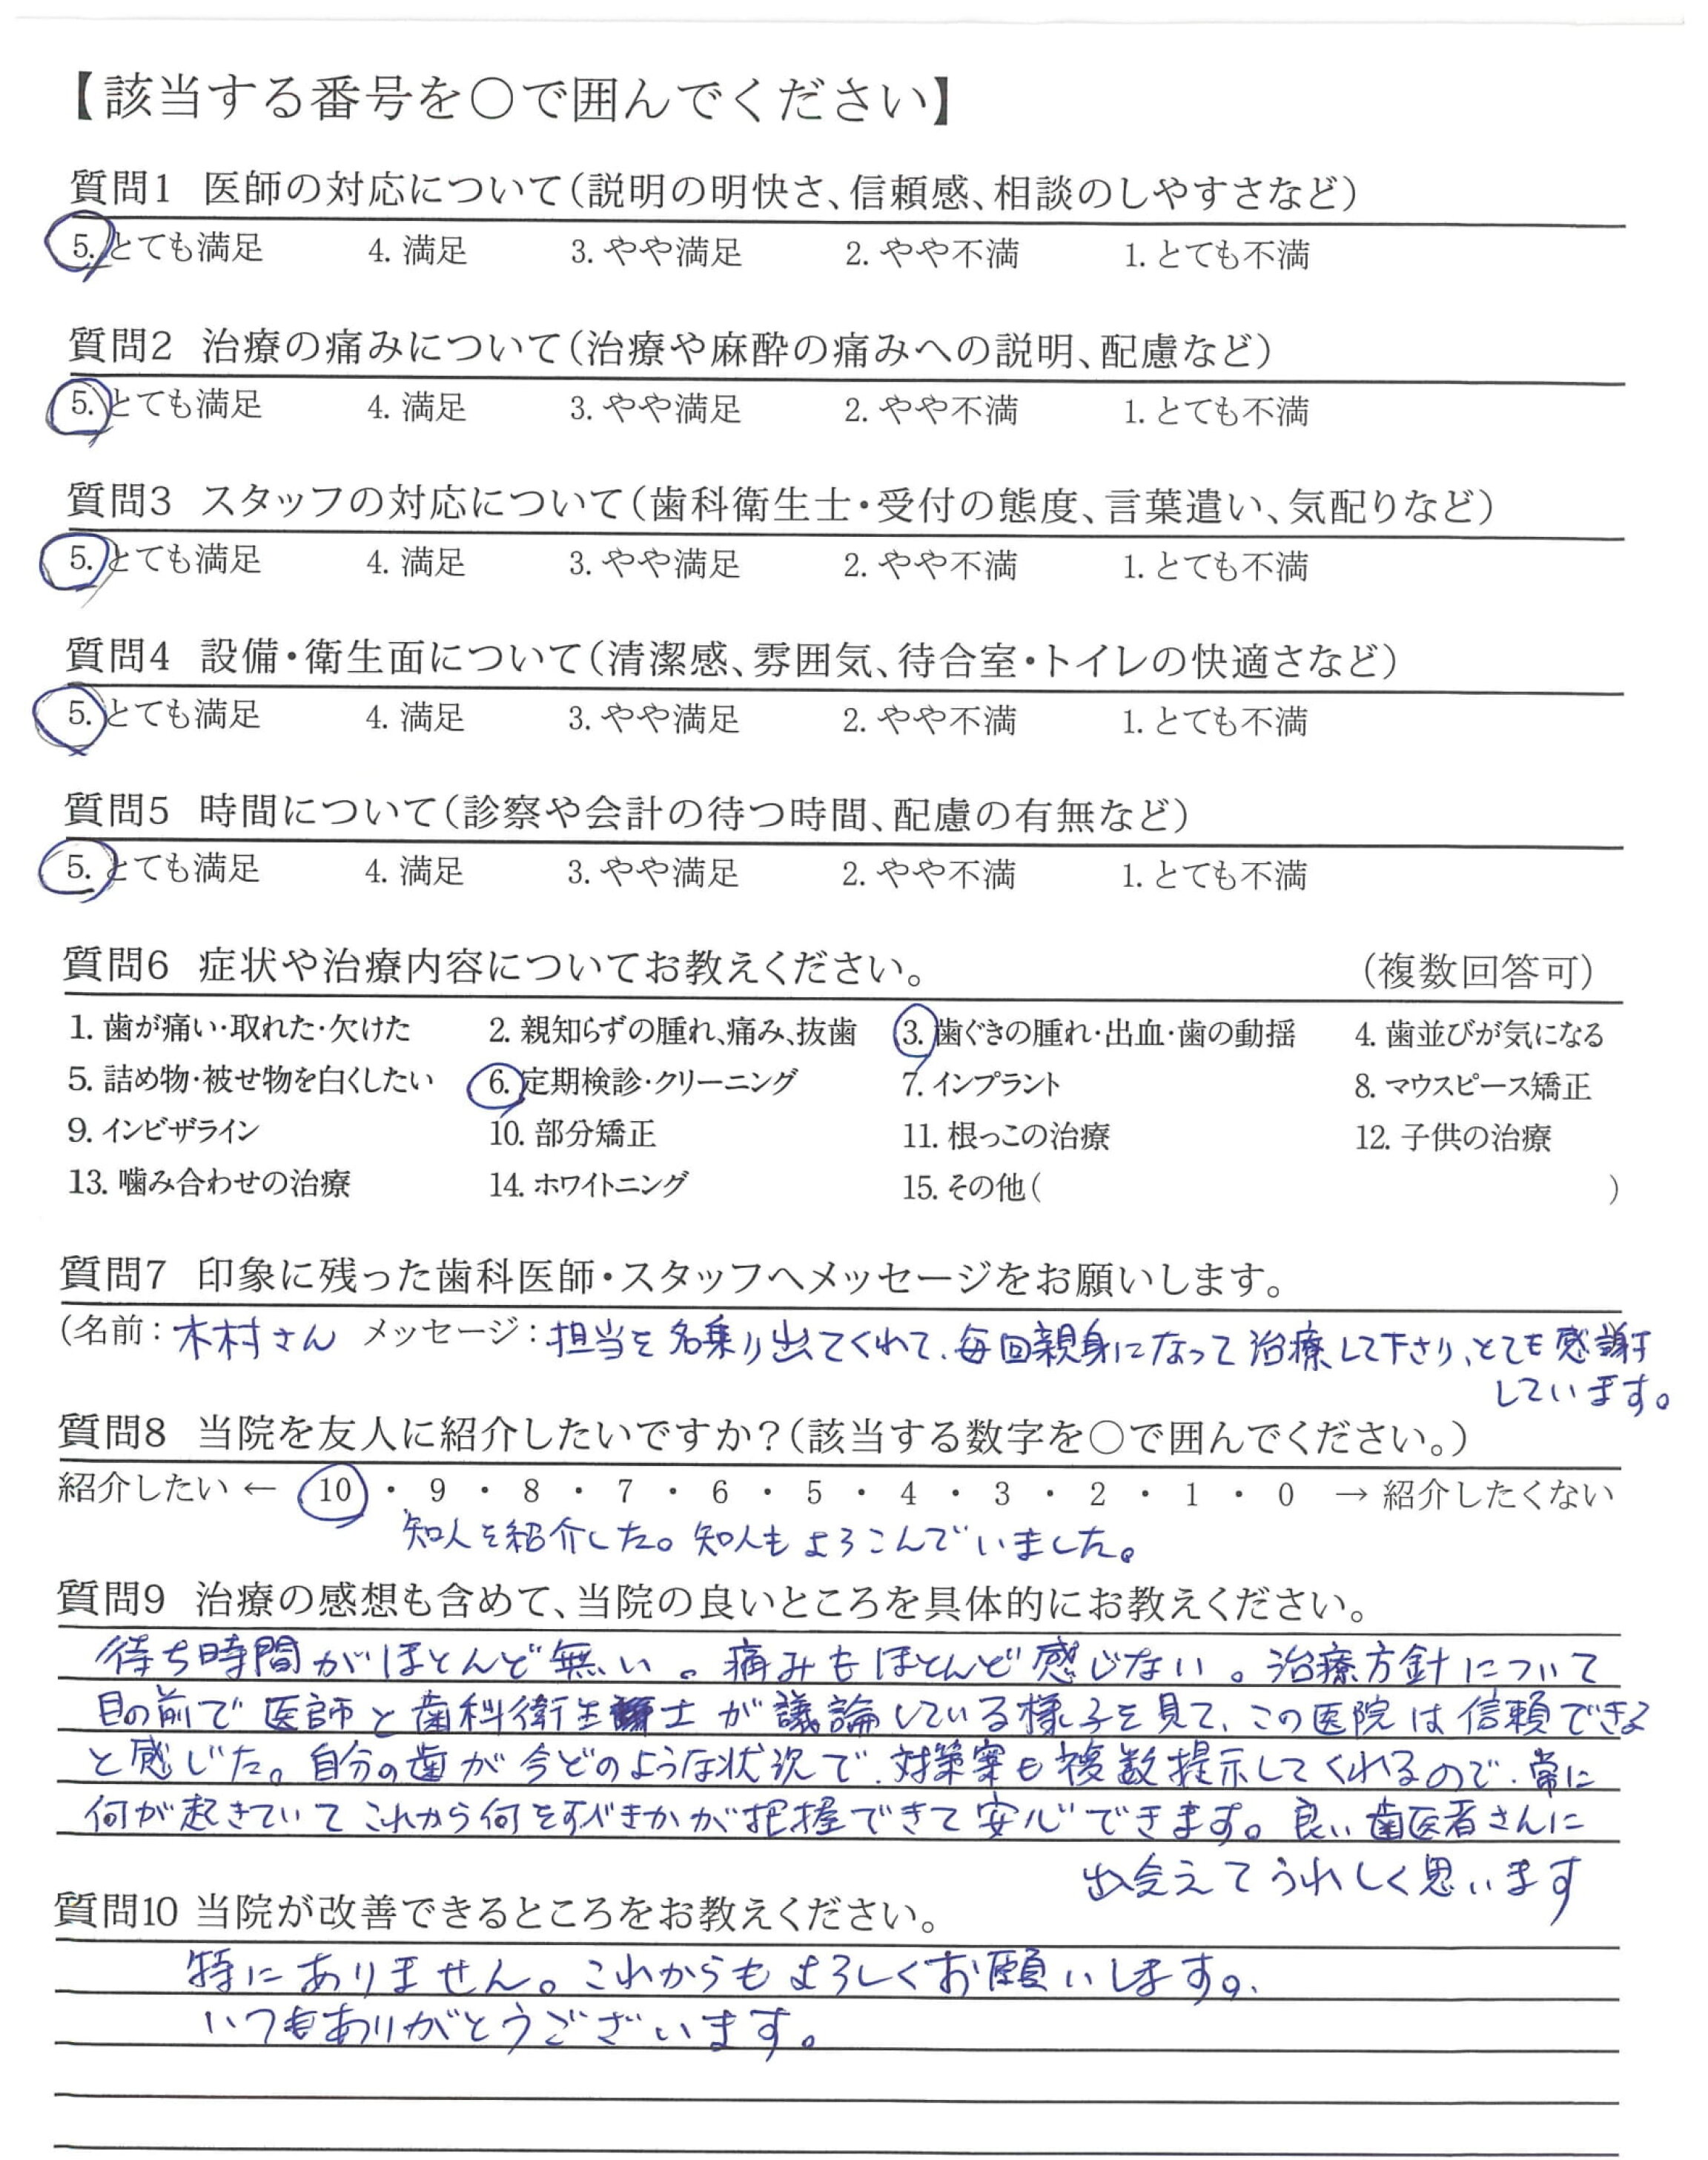 【該当する番号を○で囲んでください】
質問1 医師の対応について(説明の明快さ、信頼感、相談のしやすさなど)
5. とても満足 4. 満足 3. やや満足 2. やや不満 1. とても不満
質問2 治療の痛みについて(治療や麻酔の痛みへの説明、配慮など)
5. とても満足 4. 満足 3. やや満足 2. やや不満 1. とても不満
質問3 スタッフの対応について(歯科衛生士・受付の態度、言葉遣い、気配りなど)
5. とても満足 4. 満足 3. やや満足 2. やや不満 1. とても不満
質問4 設備・衛生面について(清潔感、雰囲気、待合室・トイレの快適さなど)
5. とても満足 4. 満足 3. やや満足 2. やや不満 1. とても不満
質問5 時間について(診察や会計の待つ時間、配慮の有無など)
5. とても満足 4. 満足 3. やや満足 2. やや不満 1. とても不満
質問6 症状や治療内容についてお教えください。 (複数回答可)
1. 歯が痛い・取れた・欠けた 2. 親知らずの腫れ、痛み、抜歯 3. 歯ぐきの腫れ・出血・歯の動揺 4. 歯並びが気になる
5. 詰め物・被せ物を白くしたい 6. 定期検診・クリーニング 7. インプラント 8. マウスピース矯正
9. インビザライン 10. 部分矯正 11. 根っこの治療 12. 子供の治療
13. 噛み合わせの治療 14. ホワイトニング 15. その他( )
質問7 印象に残った歯科医師・スタッフへメッセージをお願いします。
(名前:木村さん メッセージ:担当を名乗り出てくれて、毎回親身になって治療して下さり、とても感謝
しています。
質問8 当院を友人に紹介したいですか?(該当する数字を○で囲んでください。)
紹介したい ← 10 ・ 9 ・ 8 ・ 7 ・ 6 ・ 5 ・ 4 ・ 3 ・ 2 ・ 1 ・ 0 → 紹介したくない
知人を紹介した。知人もよろこんでいました。
質問9 治療の感想も含めて、当院の良いところを具体的にお教えください。
待ち時間がほとんど無い。痛みもほとんど感じない。治療方針について
目の前で医師と歯科衛生士が議論している様子を見て、この医院は信頼できる
と感じた。自分の歯が今どのような状況で、対策案も複数提示してくれるので、常に
何が起きていてこれから何をすべきかが把握できて安心できます。良い歯医者さんに
出会えてうれしく思います
質問10 当院が改善できるところをお教えください。
特にありません。これからもよろしくお願いします。
いつもありがとうございます。